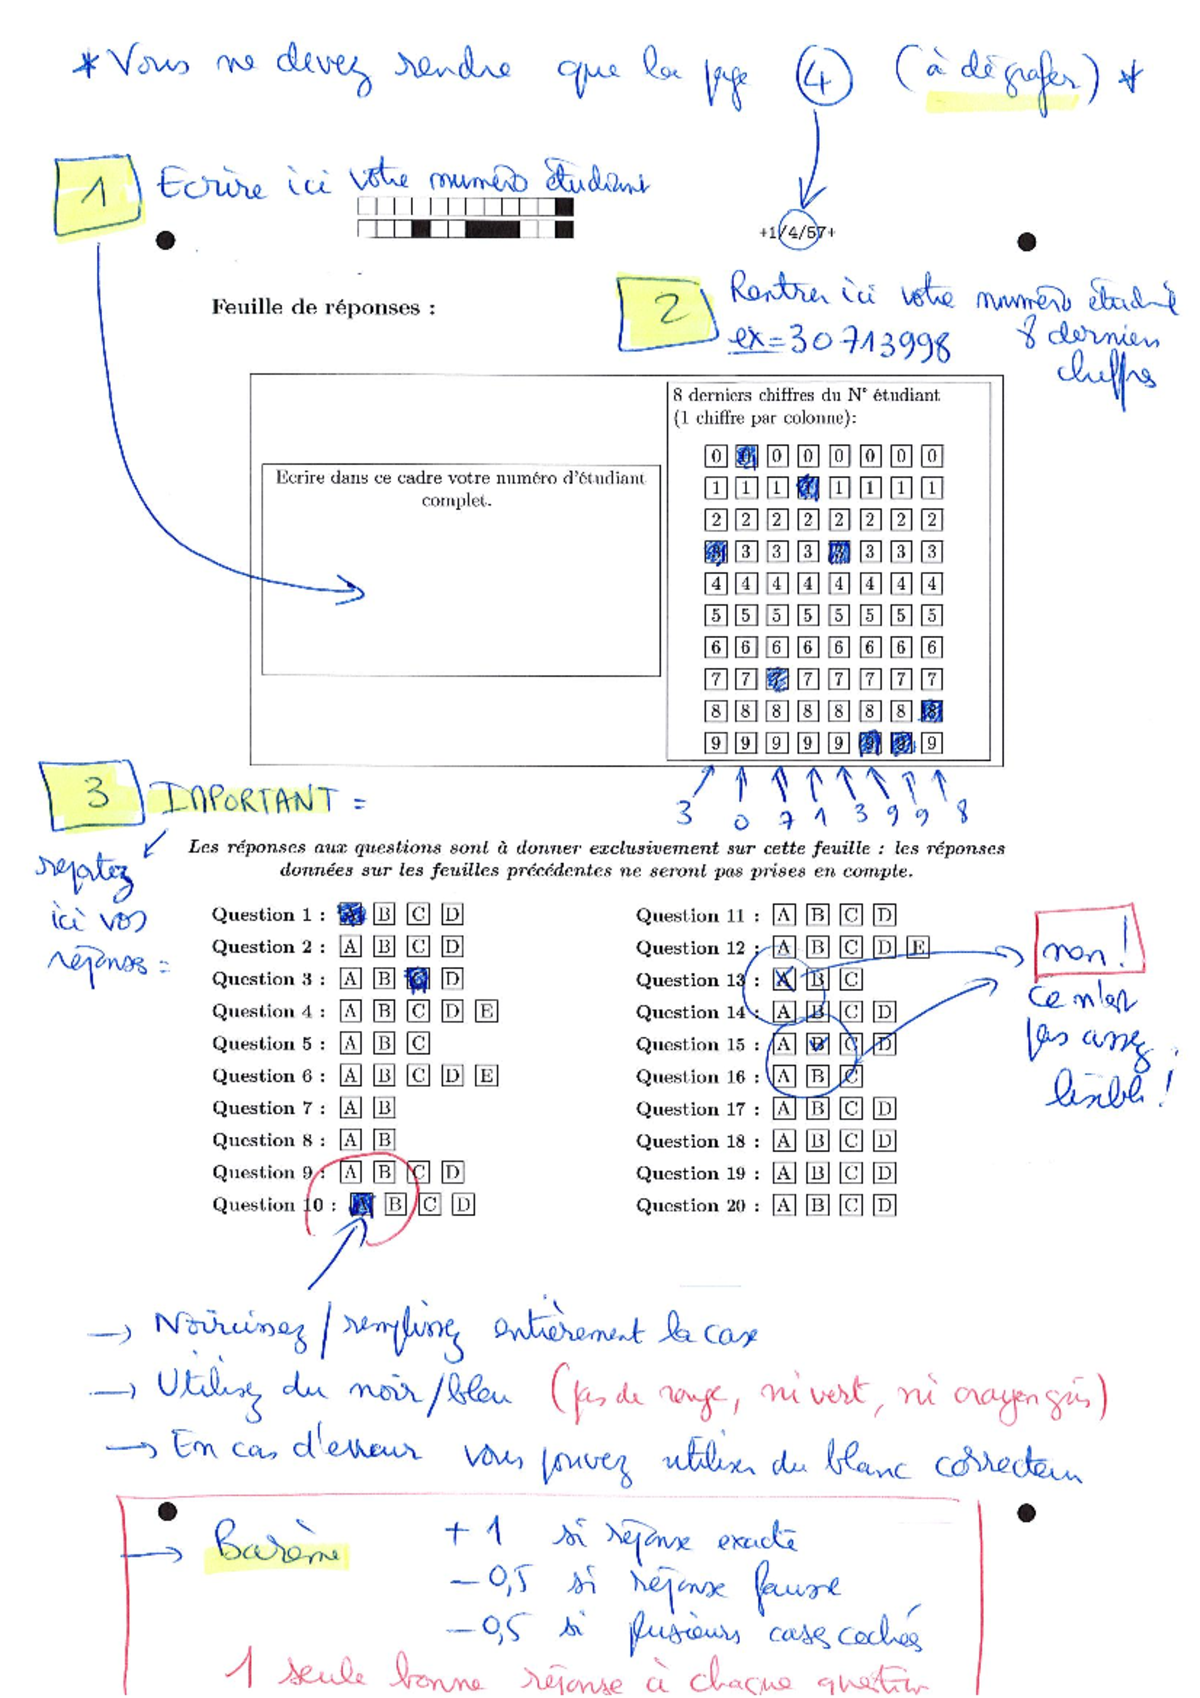 * Vous ne devez rendre que la page 4 (à dégrafer) *
1 Ecrire ici votre numéro étudiant
+1/4/57+
2 Rentrer ici votre numéro étudiant
ex = 30713998 8 derniers
chiffres
Feuille de réponses :
8 derniers chiffres du N° étudiant
(1 chiffre par colonne):
Ecrire dans ce cadre votre numéro d'étudiant
complet.
0 0 0 0 0 0 0 0
1 1 1 1 1 1 1 1
2 2 2 2 2 2 2 2
3 3 3 3 3 3 3 3
4 4 4 4 4 4 4 4
5 5 5 5 5 5 5 5
6 6 6 6 6 6 6 6
7 7 7 7 7 7 7 7
8 8 8 8 8 8 8 8
9 9 9 9 9 9 9 9
3 0 7 1 3 9 9 8
3 IMPORTANT =
reportez
ici vos
réponses =
Les réponses aux questions sont à donner exclusivement sur cette feuille : les réponses
données sur les feuilles précédentes ne seront pas prises en compte.
Question 1 : A B C D
Question 2 : A B C D
Question 3 : A B C D
Question 4 : A B C D E
Question 5 : A B C
Question 6 : A B C D E
Question 7 : A B
Question 8 : A B
Question 9 : A B C D
Question 10 : A B C D
Question 11 : A B C D
Question 12 : A B C D E
Question 13 : A B C
Question 14 : A B C D
Question 15 : A B C D
Question 16 : A B C
Question 17 : A B C D
Question 18 : A B C D
Question 19 : A B C D
Question 20 : A B C D
non !
ce n'est
pas assez
lisible !
→ Noircissez / remplissez entièrement la case
→ Utilisez du noir/bleu (pas de rouge, ni vert, ni crayon gris)
→ En cas d'erreur vous pouvez utiliser du blanc correcteur
→ Barème + 1 si réponse exacte
- 0,5 si réponse fausse
- 0,5 si plusieurs cases cochées
1 seule bonne réponse à chaque question